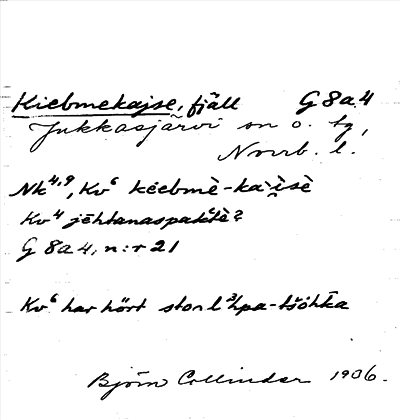 Kiebmekajse, fjäll G 8 a 4
Jukkasjärvi sn o. tg,
Norrb. l.
Nk 4,9, Kv 6 kèebmè-kaì̯sè
Kv 4 jēhtanaspaktè?
G 8 a 4, n:r 21
Kv 6 har hört
Björn Collinder 1936.